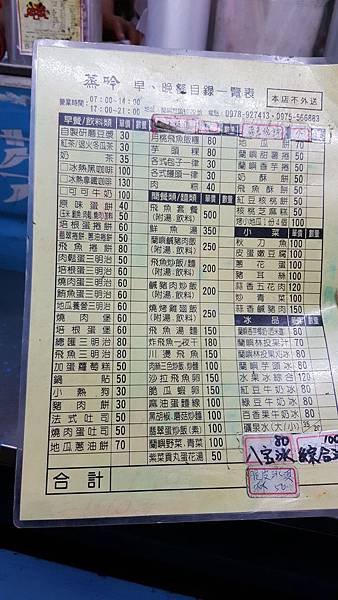 蒸吟 早、晚餐目錄一覽表
本店不外送
營業時間：07:00-14:00
17:00-21:00
電話：0978-927413、0975-566883
早餐/飲料類 單價 數量
自製研磨豆漿 30
紅茶/退火冬瓜茶 30
奶茶 35
冰熱黑咖啡 100
冰熱拿鐵咖啡 130
可可牛奶 100
原味蛋餅 40
培根蛋餅 50
飛魚捲餅 80
肉鬆蛋三明治 50
培根蛋三明治 60
燒肉蛋三明治 50
鮪魚蛋三明治 50
地瓜養營三明治 60
燒肉堡 50
培根蛋堡 60
總匯三明治 80
飛魚三明治 80
加蛋蘿蔔糕 50
鍋貼 50
小熱狗 30
豬肉餅 30
法式吐司 50
燒肉蛋吐司 50
地瓜蔥油餅 70
芋頭粿 80
各式包子一律 30
各式饅頭一律 30
肉粽 40
簡餐類/麵類 單價 數量
飛魚套餐 500
(附湯.飲料)
鮮魚湯 350
蘭嶼鹹豬肉飯 250
(附湯.飲料)
飛魚炒飯/麵 200
(附湯.飲料)
鹹豬肉炒飯 200
(附湯.飲料)
燒烤雞翅飯 200
(附湯.飲料)
飛魚湯麵 150
炸飛魚一夜干 180
川燙飛魚 150
沙拉飛魚卵 150
脆瓜蝦卵 150
麻油蛋麵線 100
黑胡椒.蘑菇炒麵 100
翡翠蛋炒飯(素) 100
蘭嶼野菜.青菜 100
紫菜貢丸蛋花湯 50
地瓜酥 70
蘭嶼甜薯捲 50
蘭嶼香芋捲 50
奶酥餅 50
飛魚酥餅 50
紅豆核桃餅 50
核桃芝麻糕 50
小菜 單價 數量
秋刀魚 100
皮蛋嫩豆腐 100
蔥花蛋 100
豬耳絲 100
蒜香五花肉 120
炒青菜 100
蒜香鹹豬肉 150
冰品 單價 數量
蘭嶼林投果汁 80
蘭嶼林投果冰 80
蘭嶼芋頭冰 80
水果冰綜合 120
紅豆牛奶冰 80
綠豆牛奶冰 80
百香果牛奶冰 80
礦泉水(大/小)
合計
80
八寶冰
100